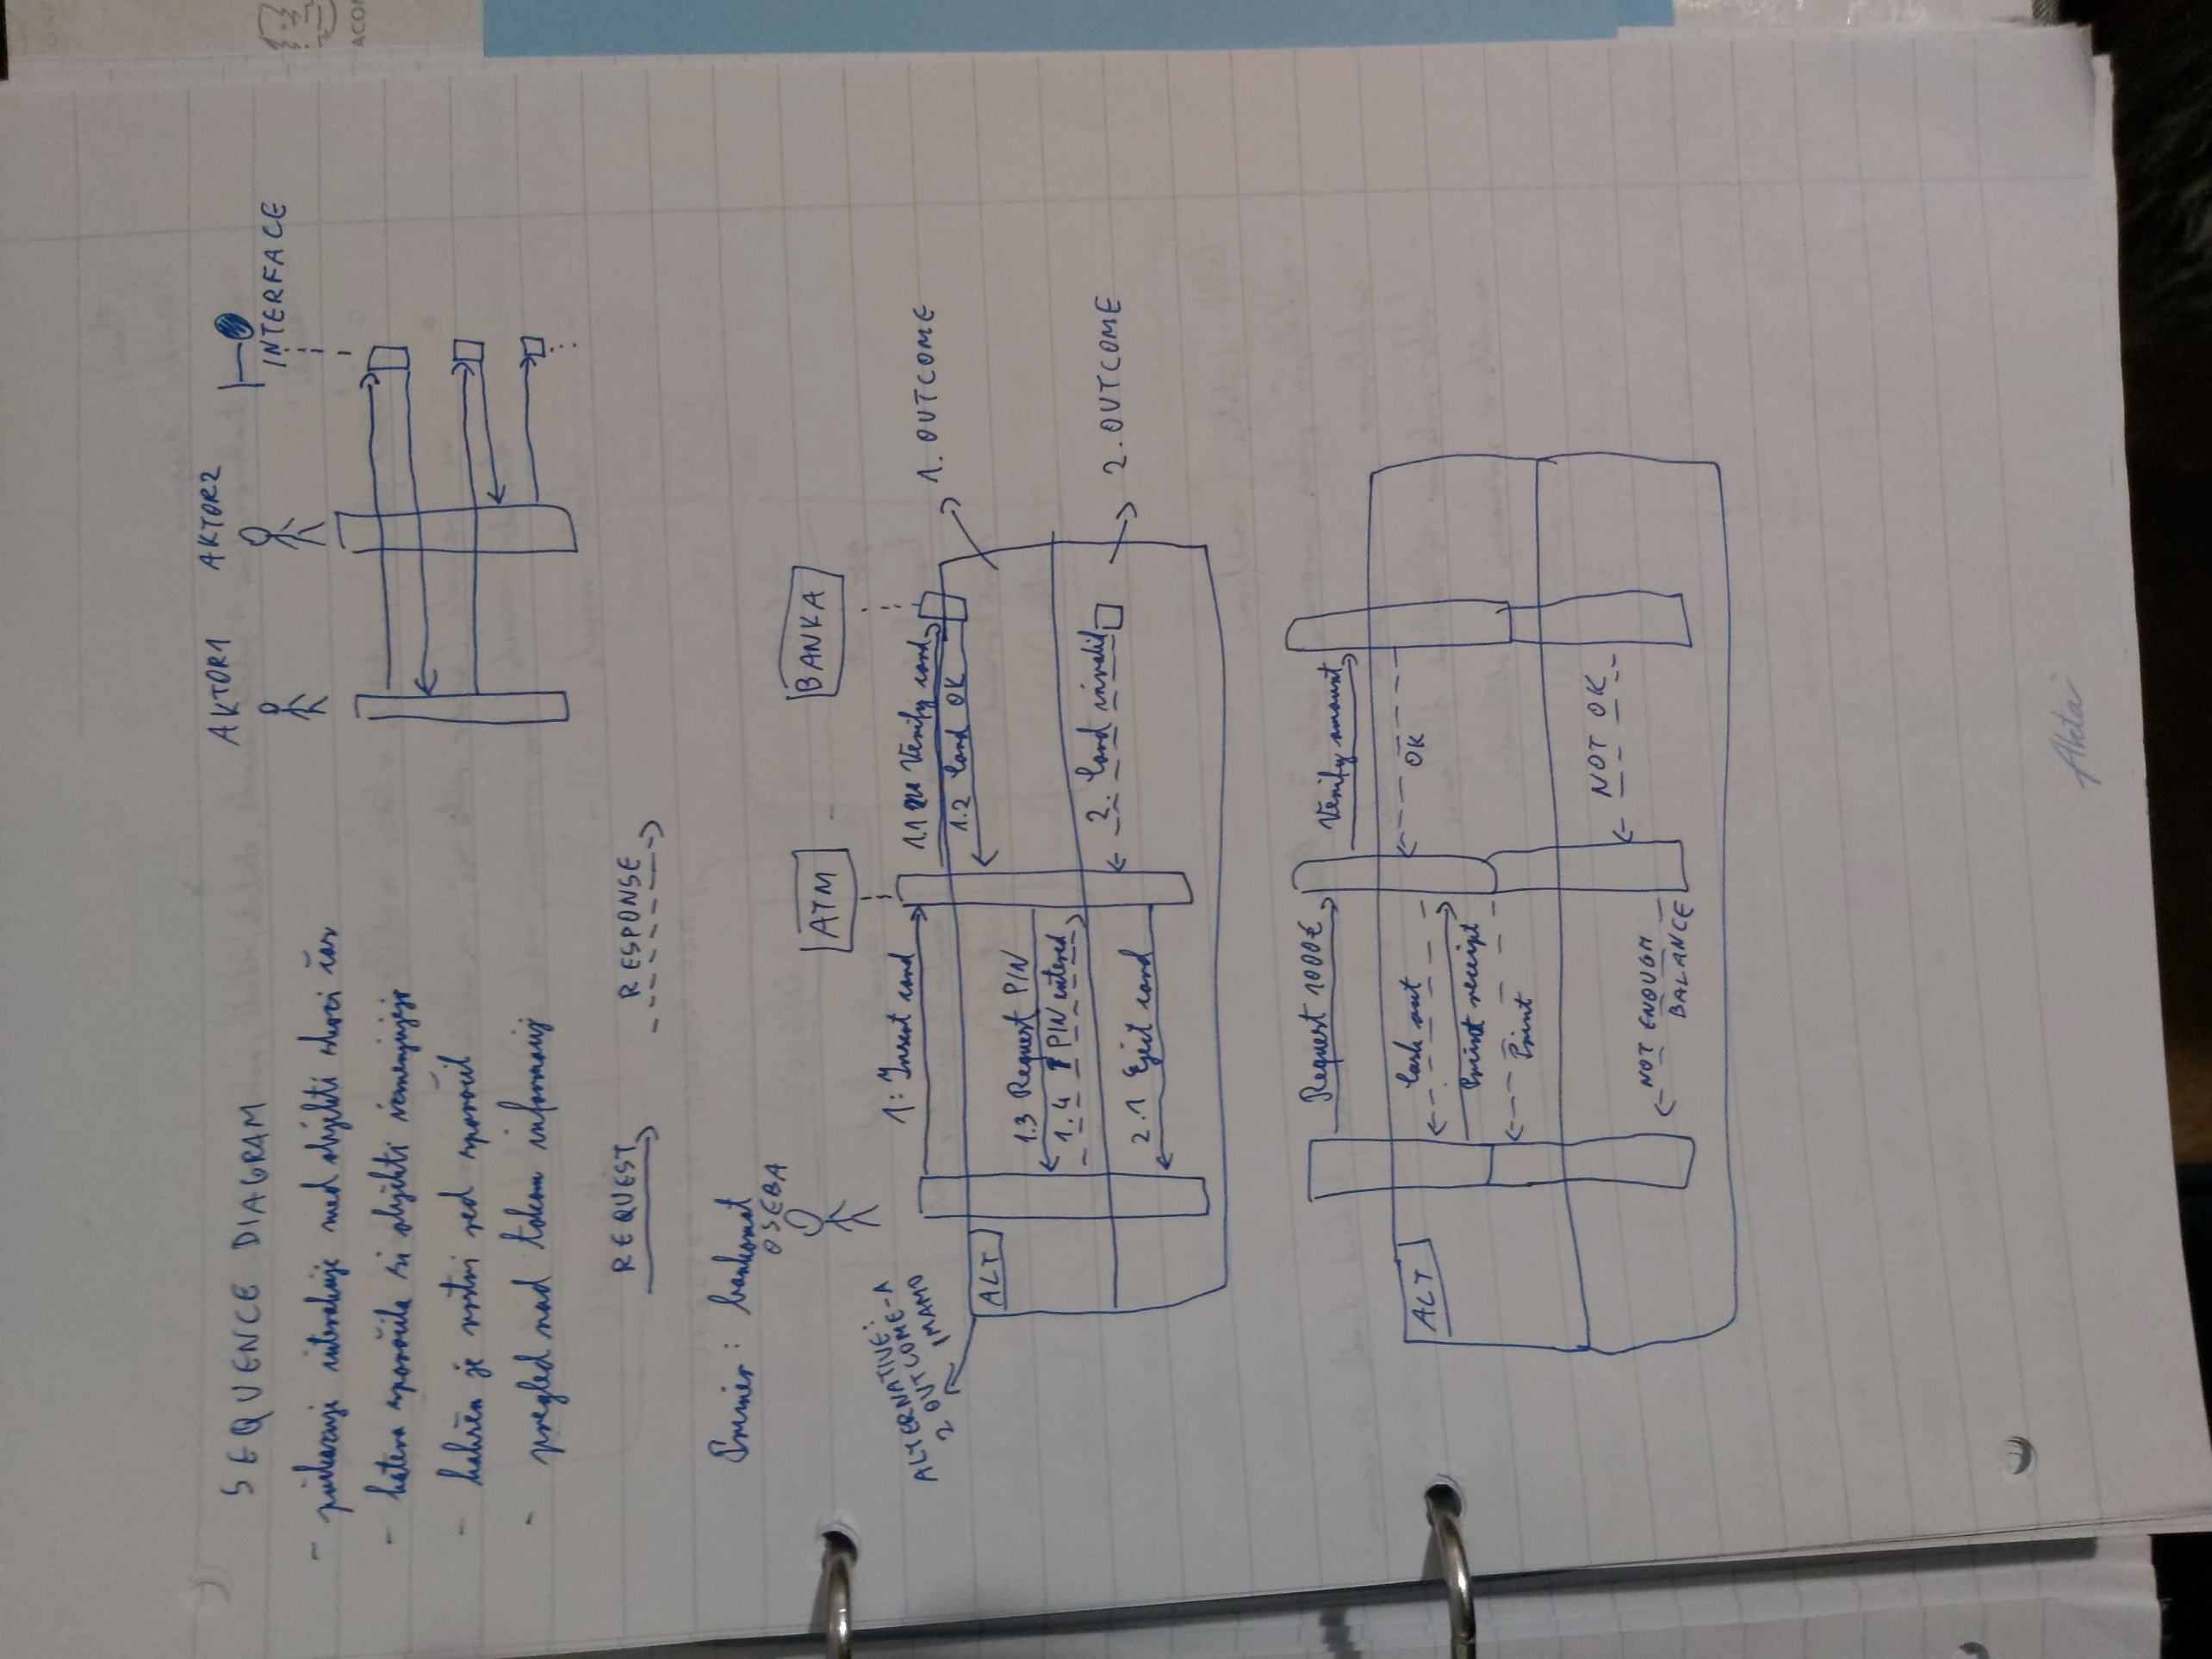 SEQUENCE DIAGRAM
- prikazuje interakcije med objekti skozi čas
- katera sporočila si objekti izmenjujejo
- kakšen je vrstni red sporočil
- pregled nad tokom informacij
AKTOR1
AKTOR2
INTERFACE
REQUEST
RESPONSE
Primer: bankomat
OSEBA
ATM
BANKA
ALTERNATIVE:
2 OUTCOME-A
IMAMO
1: Insert card
1.1 Verify card
1.2 Card OK
1. OUTCOME
ALT
1.3 Request PIN
1.4 PIN entered
2. Card invalid
2. OUTCOME
2.1 Eject card
Request 1000€
Verify amount
ALT
Cash out
OK
Print receipt
Print
NOT OK
NOT ENOUGH
BALANCE
Akta